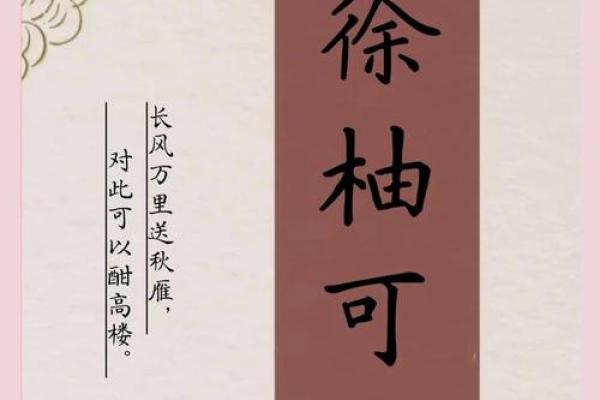 徐柚可
长风万里送秋雁，
对此可以酣高楼。